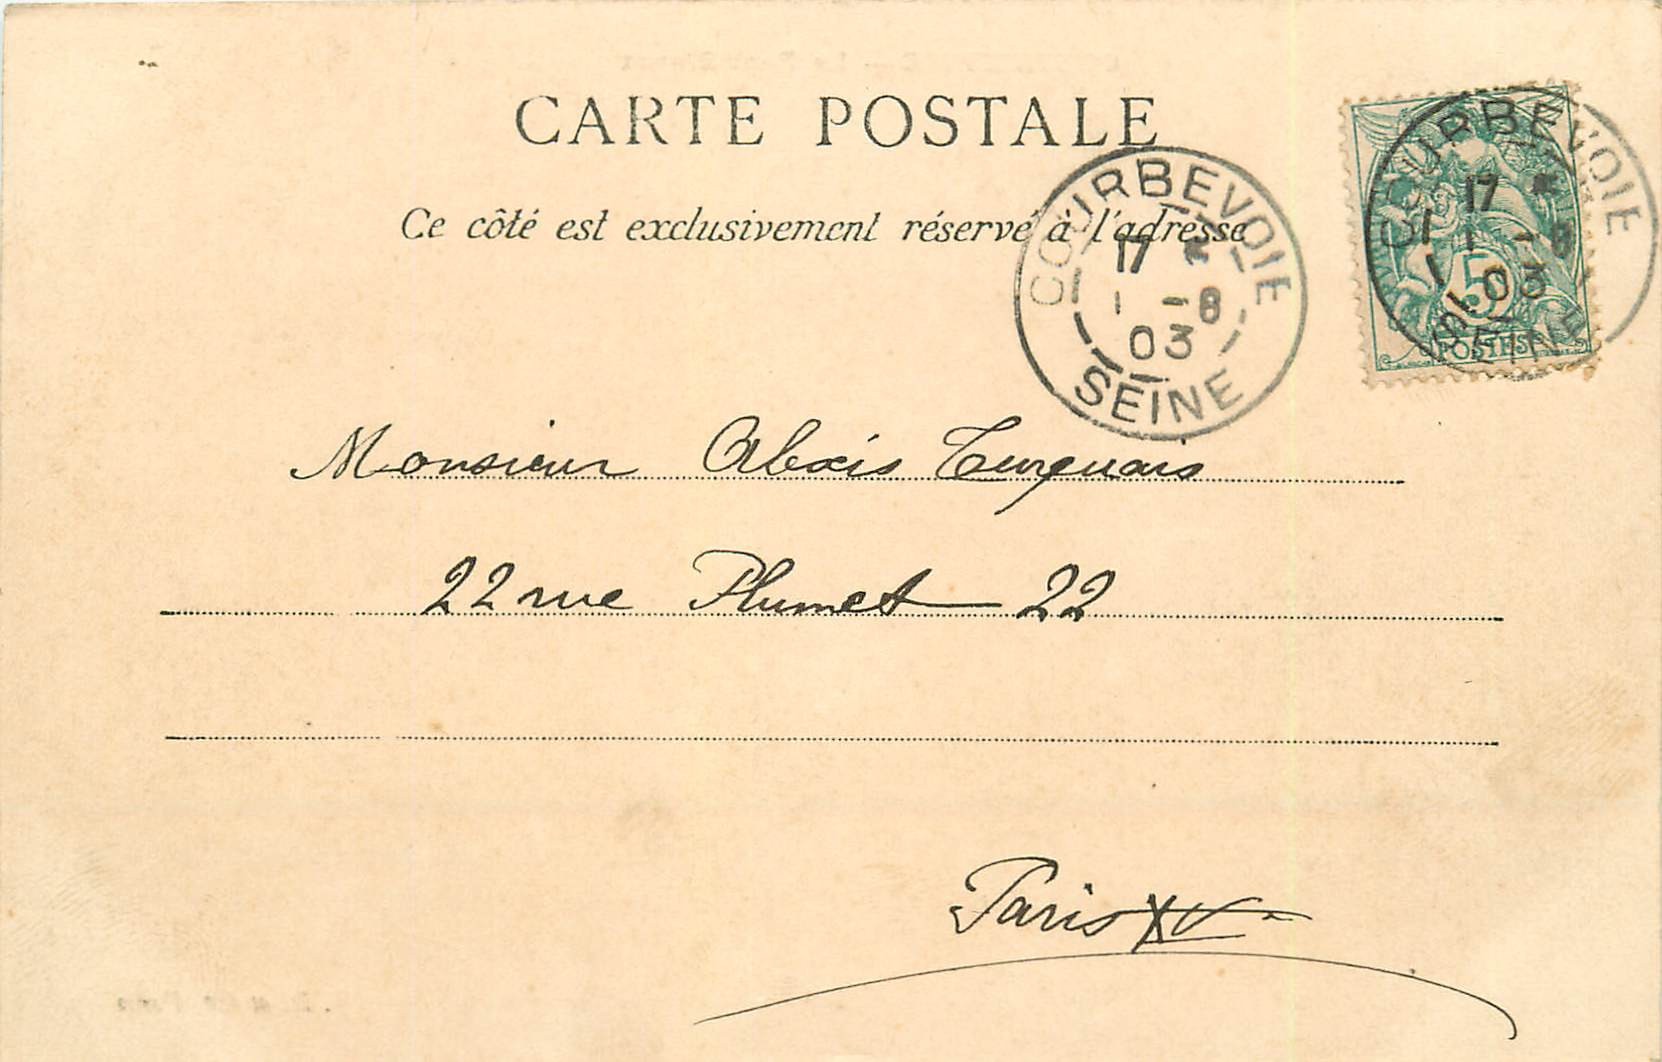 CARTE POSTALE
Ce côté est exclusivement réservé à l'adresse
COURBEVOIE
17
1 -8
03
SEINE
COURBEVOIE
17
1 -8
03
SEINE
5
POSTES
Monsieur Alexis Turquais
22 rue Plumet 22
Paris XV